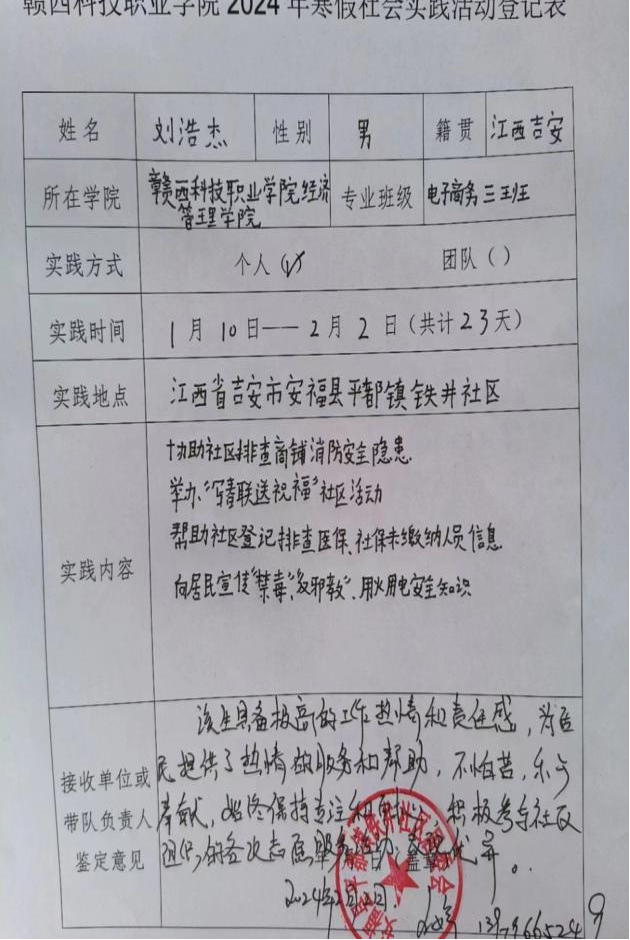 赣西科技职业学院 2024 年寒假社会实践活动登记表
姓名 刘浩杰 性别 男 籍贯 江西吉安
所在学院 赣西科技职业学院经济管理学院 专业班级 电子商务三班
实践方式 个人 (√) 团队 ( )
实践时间 1 月 10 日——2 月 2 日 (共计23天)
实践地点 江西省吉安市安福县平都镇铁井社区
实践内容
协助社区排查商铺消防安全隐患
举办“写春联送祝福”社区活动
帮助社区登记排查医保、社保未缴纳人员信息
向居民宣传“禁毒”、“反邪教”、用火用电安全知识
接收单位或
带队负责人
鉴定意见
该生具备极高的工作热情和责任感，为居
民提供了热情的服务和帮助，不怕苦，乐于
奉献，始终保持专注和 积极参与社区
组织的各次志愿服务活动，表现优异。
2024年2月2日